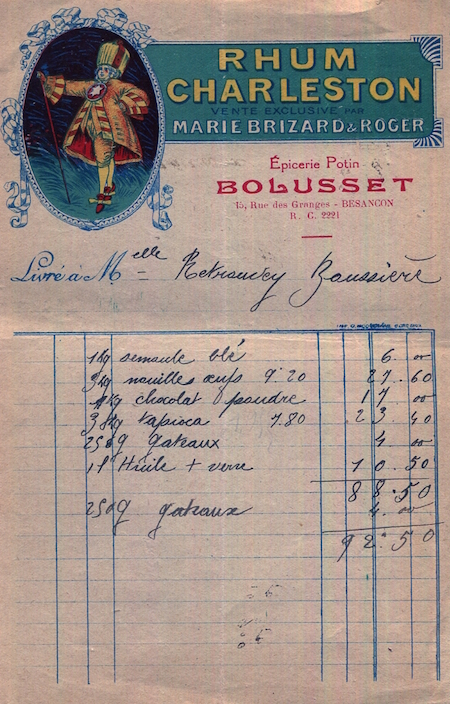 RHUM
CHARLESTON
VENTE EXCLUSIVE PAR
MARIE BRIZARD & ROGER
Épicerie Potin
BOLUSSET
15, Rue des Granges - BESANCON
R. C. 2221
Livré à Melle Retrouvey Boussière
1 kg semoule blé 6.00
3 kg nouilles œufs 9.20 27.60
1 kg chocolat poudre 17.00
3 kg tapioca 7.80 23.40
250g gateaux 4.00
1 l Huile + verre 10.50
88.50
250g gateaux 4.00
92.50